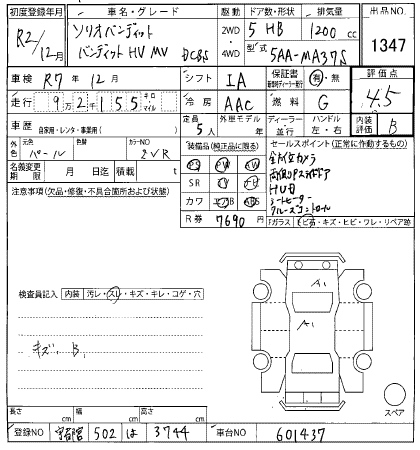 初度登録年月 車名・グレード 駆動 ドア数・形状 排気量 出品NO
R2/12月 ソリオバンディット 2WD 5 HB 1200 cc
バンディットHV MV DCBS 4WD 型式 5AA-MA37S 1347
車検 R7年12月 シフト IA 保証書 有・無 評価点
走行 9万2千155 キロ マイル 冷房 AAC 燃料 G 4.5
車歴 自家用・レンタ・事業用( ) 定員 5人 外車モデル 年 ディーラー 並行 ハンドル 左・右 内装評価 B
外色 元色 パール 色替 カラーNO ZVR 装備品(純正品に限る) セールスポイント(正常に作動するもの)
名義変更期限 月 日迄 積載 t PS PW
注意事項(欠品・修復・不具合箇所および状態) SR
全方位カメラ
HUD
カワ ABS シートヒーター
R券 7690円 クルーズコントロール
Fガラス ヒビ・キズ・ヒビ・ワレ・リペア跡
検査員記入 内装 汚レ・スレ・キズ・キレ・コゲ・穴
A1
A1
キズ、B、
スペア
長さ cm 幅 cm 高さ cm
登録NO 宇都宮 502 は 3744 車台NO 601437